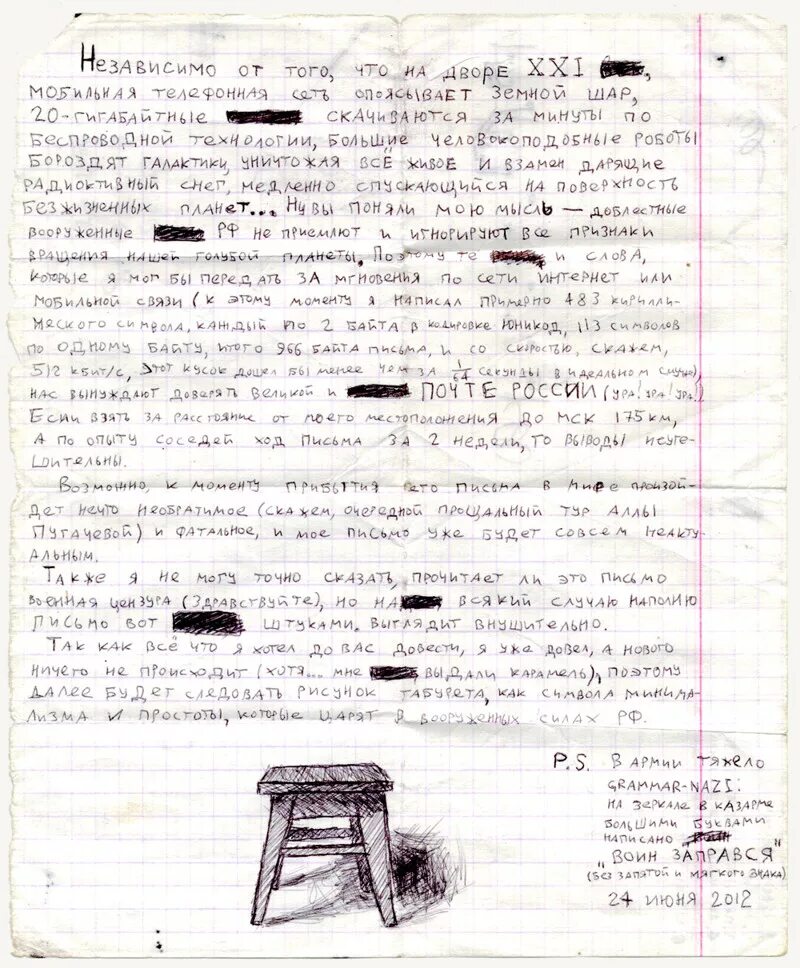 Независимо от того, что на дворе XXI ,
мобильная телефонная сеть опоясывает Земной шар,
20-гигабайтные скачиваются за минуты по
беспроводной технологии, большие человокоподобные роботы
бороздят галактики, уничтожая всё живое и взамен дарящие
радиоктивный снег, медленно спускающийся на поверхность
безжизненных планет... Ну вы поняли мою мысль — доблестные
вооруженные РФ не приемлют и игнорируют все признаки
вращения нашей голубой планеты. Поэтому те и слова,
которые я мог бы передать за мгновения по сети интернет или
мобильной связи (к этому моменту я написал примерно 483 кирилли-
ческого символа, каждый по 2 байта в кодировке Юникод, 113 символов
по одному байту, итого 966 байта письма, и со скоростью, скажем,
512 кбит/с, этот кусок дошел бы менее чем за 1/64 секунды в идеальном случае),
нас вынуждают доверять великой и ПОЧТЕ РОССИИ (ура! ура! ура!)
Если взять за расстояние от моего местоположения до МСК 175 км,
а по опыту соседей ход письма за 2 недели, то выводы неуте-
шительны.
Возможно, к моменту прибытия сего письма в мире произой-
дет нечто необратимое (скажем, очередной прощальный тур Аллы
Пугачевой) и фатальное, и мое письмо уже будет совсем неакту-
альным.
Также я не могу точно сказать, прочитает ли это письмо
военная цензура (Здравствуйте), но на всякий случаю наполню
письмо вот штуками. Выглядит внушительно.
Так как всё что я хотел до вас довести, я уже довел, а нового
ничего не происходит (хотя... мне выдали карамель), поэтому
далее будет следовать рисунок табурета, как символа минима-
лизма и простоты, которые царят в вооруженных силах РФ.
P.S. В армии тяжело
GRAMMAR-NAZI:
на зеркале в казарме
большими буквами
написано
"ВОИН ЗАПРАВСЯ"
(без запятой и мягкого знака)
24 июня 2012